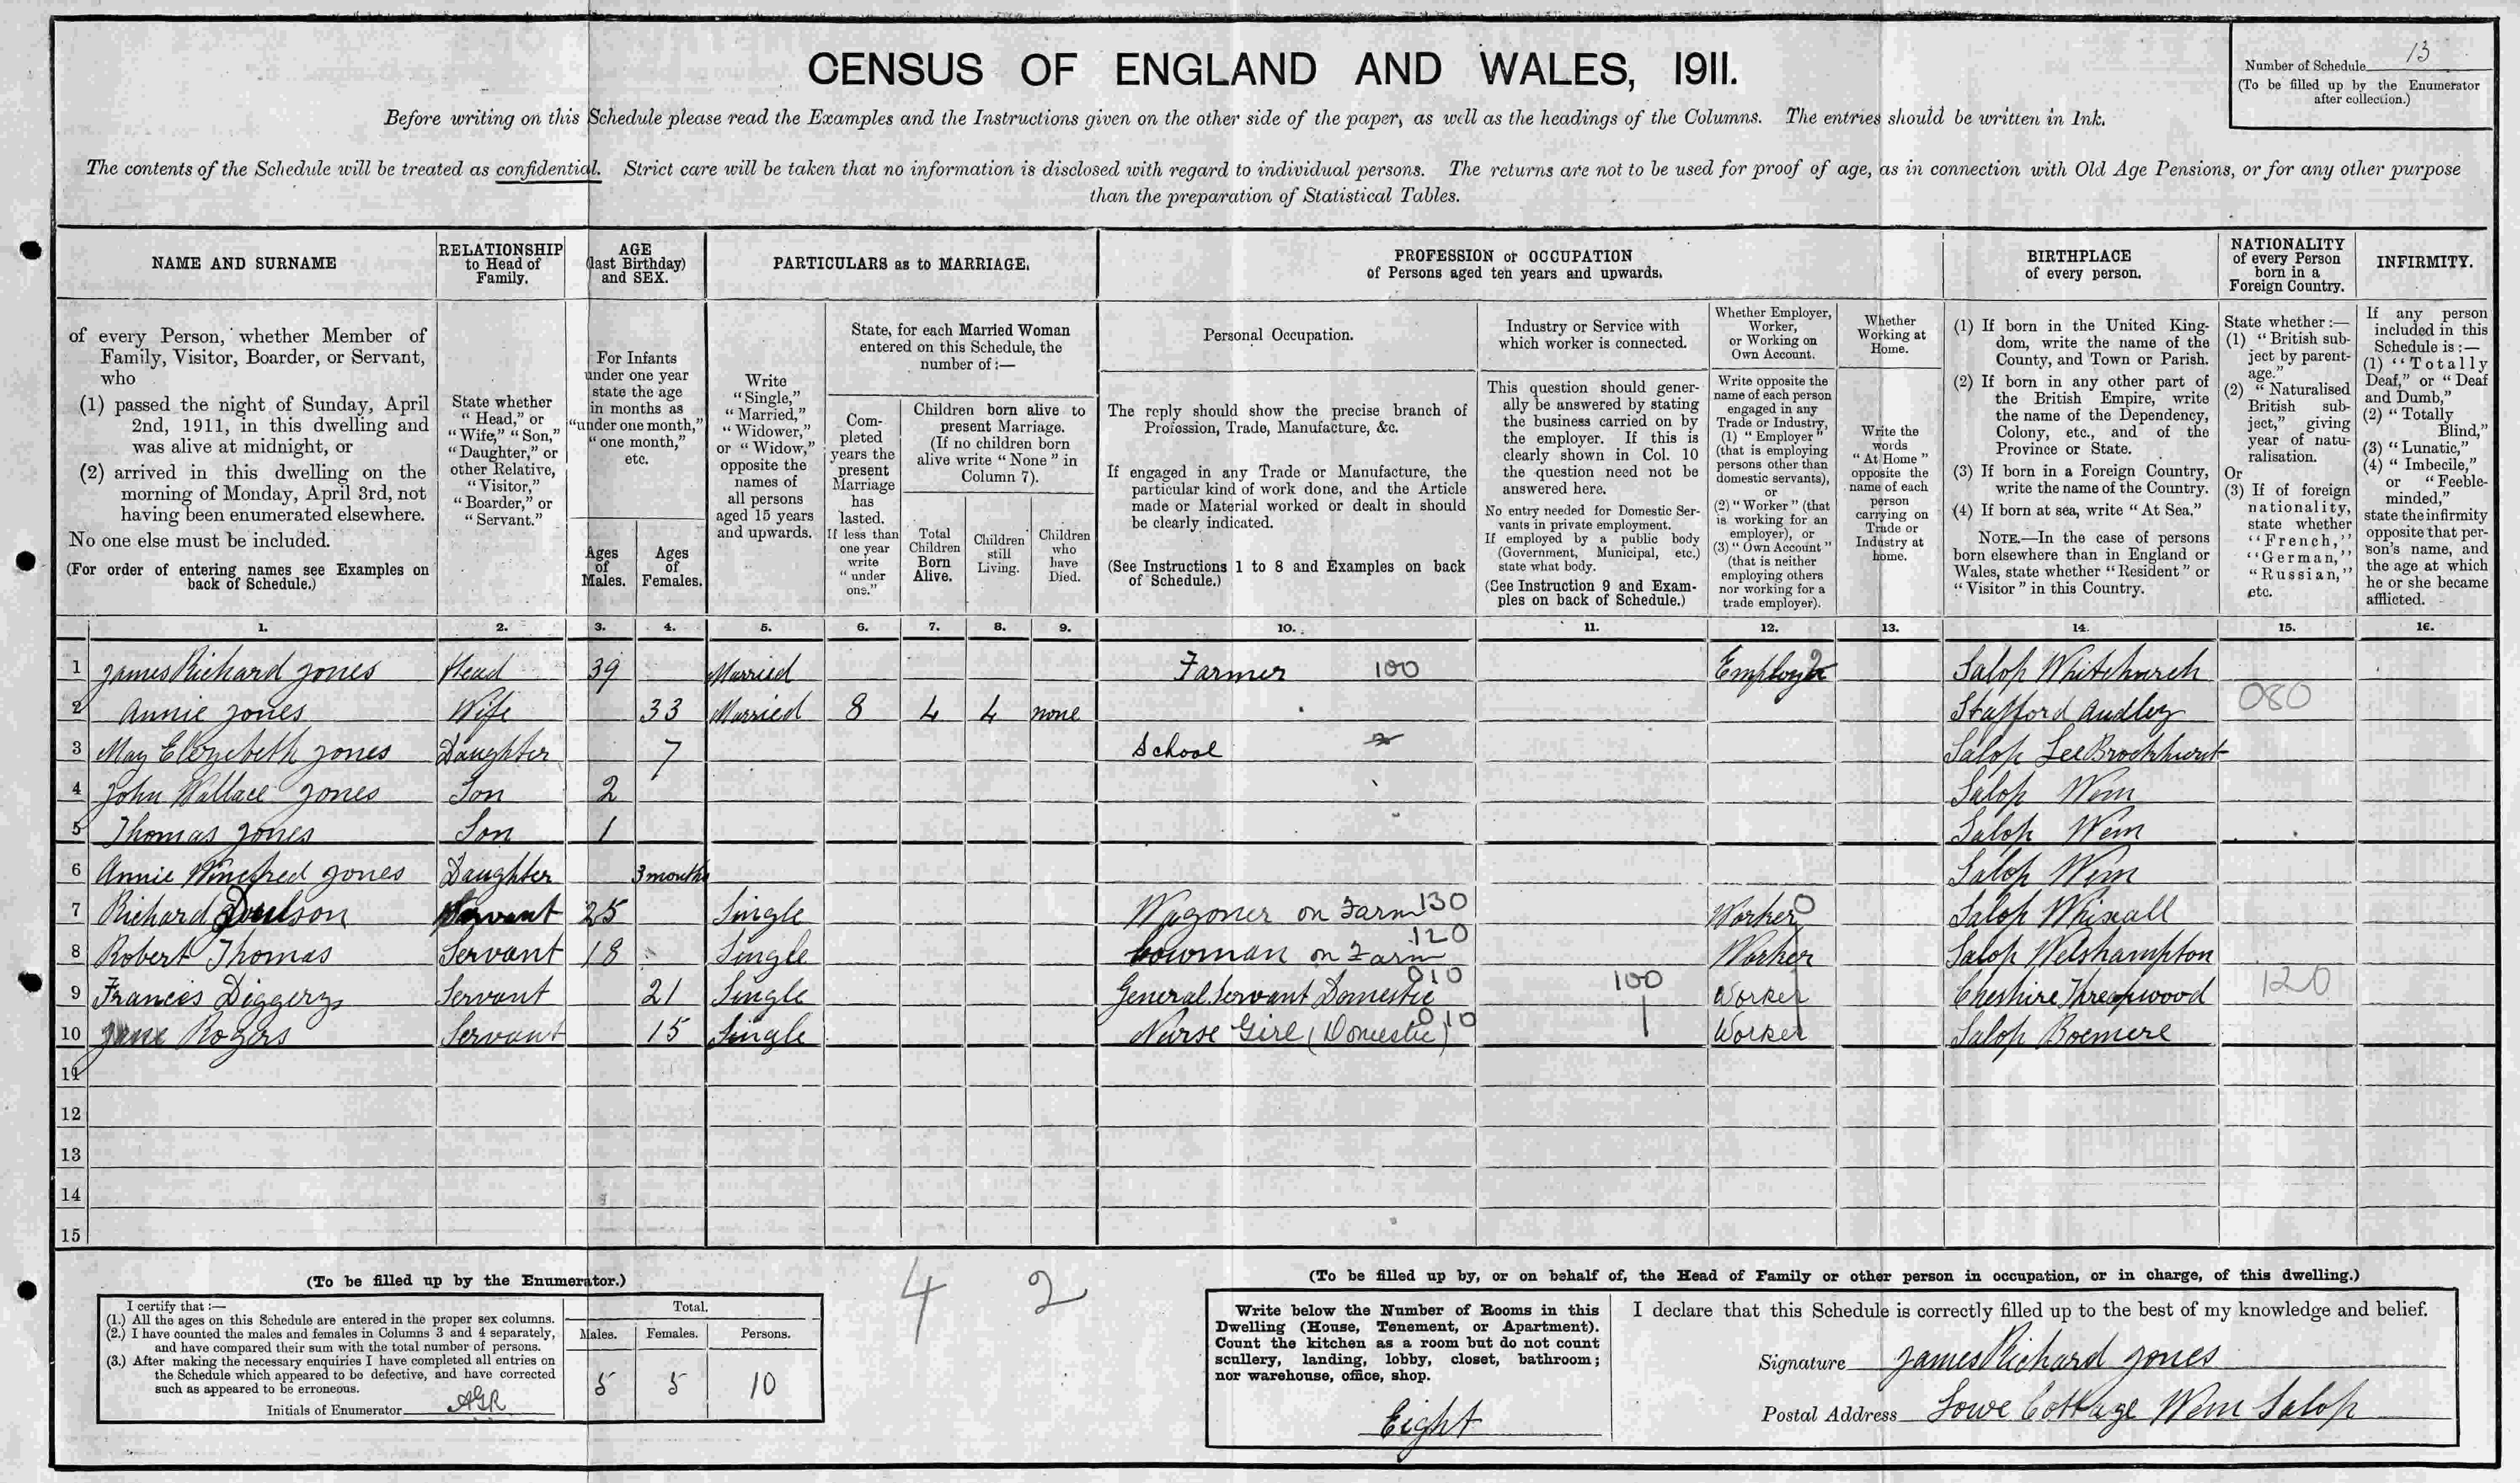 CENSUS OF ENGLAND AND WALES, 1911.
Number of Schedule 13
(To be filled up by the Enumerator
after collection.)
Before writing on this Schedule please read the Examples and the Instructions given on the other side of the paper, as well as the headings of the Columns. The entries should be written in Ink.
The contents of the Schedule will be treated as confidential. Strict care will be taken that no information is disclosed with regard to individual persons. The returns are not to be used for proof of age, as in connection with Old Age Pensions, or for any other purpose
than the preparation of Statistical Tables.
NAME AND SURNAME
of every Person, whether Member of
Family, Visitor, Boarder, or Servant,
who
(1) passed the night of Sunday, April
2nd, 1911, in this dwelling and
was alive at midnight, or
(2) arrived in this dwelling on the
morning of Monday, April 3rd, not
having been enumerated elsewhere.
No one else must be included.
(For order of entering names see Examples on
back of Schedule.)
RELATIONSHIP
to Head of
Family.
State whether
"Head," or
"Wife," "Son,"
"Daughter," or
other Relative,
"Visitor,"
"Boarder," or
"Servant."
AGE
(last Birthday)
and SEX.
For Infants
under one year
state the age
in months as
"under one month,"
"one month,"
etc.
Ages
of
Males.
Ages
of
Females.
PARTICULARS as to MARRIAGE.
Write
"Single,"
"Married,"
"Widower,"
or "Widow,"
opposite the
names of
all persons
aged 15 years
and upwards.
State, for each Married Woman
entered on this Schedule, the
number of:—
Com-
pleted
years the
present
Marriage
has
lasted.
If less than
one year
write
"under
one."
Children born alive to
present Marriage.
(If no children born
alive write "None" in
Column 7).
Total
Children
Born
Alive.
Children
still
Living.
Children
who
have
Died.
PROFESSION or OCCUPATION
of Persons aged ten years and upwards.
Personal Occupation.
The reply should show the precise branch of
Profession, Trade, Manufacture, &c.
If engaged in any Trade or Manufacture, the
particular kind of work done, and the Article
made or Material worked or dealt in should
be clearly indicated.
(See Instructions 1 to 8 and Examples on back
of Schedule.)
Industry or Service with
which worker is connected.
This question should gener-
ally be answered by stating
the business carried on by
the employer. If this is
clearly shown in Col. 10
the question need not be
answered here.
No entry needed for Domestic Ser-
vants in private employment.
If employed by a public body
(Government, Municipal, etc.)
state what body.
(See Instruction 9 and Exam-
ples on back of Schedule.)
Whether Employer,
Worker,
or Working on
Own Account.
Write opposite the
name of each person
engaged in any
Trade or Industry,
(1) "Employer"
(that is employing
persons other than
domestic servants),
or
(2) "Worker" (that
is working for an
employer), or
(3) "Own Account"
(that is neither
employing others
nor working for a
trade employer).
Whether
Working at
Home.
Write the
words
"At Home"
opposite the
name of each
person
carrying on
Trade or
Industry at
home.
BIRTHPLACE
of every person.
(1) If born in the United King-
dom, write the name of the
County, and Town or Parish.
(2) If born in any other part of
the British Empire, write
the name of the Dependency,
Colony, etc., and of the
Province or State.
(3) If born in a Foreign Country,
write the name of the Country.
(4) If born at sea, write "At Sea."
NOTE.—In the case of persons
born elsewhere than in England or
Wales, state whether "Resident" or
"Visitor" in this Country.
NATIONALITY
of every Person
born in a
Foreign Country.
State whether:—
(1) "British sub-
ject by parent-
age."
(2) "Naturalised
British sub-
ject," giving
year of natu-
ralisation.
Or
(3) If of foreign
nationality,
state whether
"French,"
"German,"
"Russian,"
etc.
INFIRMITY.
If any person
included in this
Schedule is:—
(1) "Totally
Deaf," or "Deaf
and Dumb,"
(2) "Totally
Blind,"
(3) "Lunatic,"
(4) "Imbecile,"
or "Feeble-
minded,"
state the infirmity
opposite that per-
son's name, and
the age at which
he or she became
afflicted.
1. 2. 3. 4. 5. 6. 7. 8. 9. 10. 11. 12. 13. 14. 15. 16.
1 James Richard Jones Head 39 Married Farmer 100 Employer 2 Salop Whitchurch
2 Annie Jones Wife 33 Married 8 4 4 none Stafford Audley 080
3 May Elizebeth Jones Daughter 7 School Salop Lee Brockhurst
4 John Wallace Jones Son 2 Salop Wem
5 Thomas Jones Son 1 Salop Wem
6 Annie Winefred Jones Daughter 3 months Salop Wem
7 Richard Servant 25 Single Wagoner on Farm 130 Worker 0 Salop Whixall
8 Robert Thomas Servant 18 Single Cowman on Farm 120 Worker Salop Welshampton
9 Francis Diggery Servant 21 Single General Servant Domestic 010 100 Worker Cheshire Threapwood 120
10 Jane Rogers Servant 15 Single Nurse Girl (Domestic) 010 Worker Salop Boemere
11
12
13
14
15
4 2
(To be filled up by the Enumerator.)
I certify that:—
(1.) All the ages on this Schedule are entered in the proper sex columns.
(2.) I have counted the males and females in Columns 3 and 4 separately,
and have compared their sum with the total number of persons.
(3.) After making the necessary enquiries I have completed all entries on
the Schedule which appeared to be defective, and have corrected
such as appeared to be erroneous.
Initials of Enumerator AGR
Total.
Males. Females. Persons.
5 5 10
(To be filled up by, or on behalf of, the Head of Family or other person in occupation, or in charge, of this dwelling.)
Write below the Number of Rooms in this
Dwelling (House, Tenement, or Apartment).
Count the kitchen as a room but do not count
scullery, landing, lobby, closet, bathroom;
nor warehouse, office, shop.
Eight
I declare that this Schedule is correctly filled up to the best of my knowledge and belief.
Signature James Richard Jones
Postal Address Lowe Cottage Wem Salop